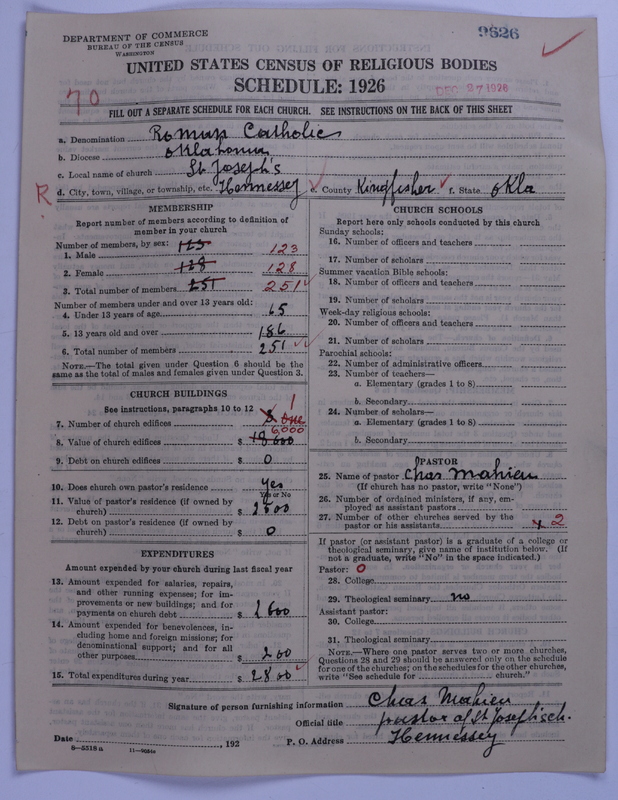 DEPARTMENT OF COMMERCE
BUREAU OF THE CENSUS
WASHINGTON
9626
UNITED STATES CENSUS OF RELIGIOUS BODIES
SCHEDULE: 1926
DEC 27 1926
70
FILL OUT A SEPARATE SCHEDULE FOR EACH CHURCH. SEE INSTRUCTIONS ON THE BACK OF THIS SHEET
a. Denomination Roman Catholic
b. Diocese Oklahoma
c. Local name of church St Joseph's
R d. City, town, village, or township, etc. Hennessey e. County Kingfisher f. State Okla
MEMBERSHIP
Report number of members according to definition of member in your church
Number of members, by sex:
1. Male 123 123
2. Female 128 128
3. Total number of members 251 251
Number of members under and over 13 years old:
4. Under 13 years of age 65
5. 13 years old and over 186
6. Total number of members 251
NOTE.—The total given under Question 6 should be
same as the total of males and females given under Question 3.
CHURCH BUILDINGS
See instructions, paragraphs 10 to 12
7. Number of church edifices One 1
8. Value of church edifices $ 6,000
9. Debt on church edifices $ 0
10. Does church own pastor's residence Yes
Yes or No
11. Value of pastor's residence (if owned by
church) $ 2500
12. Debt on pastor's residence (if owned by
church) $ 0
EXPENDITURES
Amount expended by your church during last fiscal year
13. Amount expended for salaries, repairs,
and other running expenses; for im-
provements or new buildings; and for
payments on church debt $ 2600
14. Amount expended for benevolences, in-
cluding home and foreign missions; for
denominational support; and for all
other purposes $ 200
15. Total expenditures during year $ 2800
CHURCH SCHOOLS
Report here only schools conducted by this church
Sunday schools:
16. Number of officers and teachers
17. Number of scholars
Summer vacation Bible schools:
18. Number of officers and teachers
19. Number of scholars
Week-day religious schools:
20. Number of officers and teachers
21. Number of scholars
Parochial schools:
22. Number of administrative officers
23. Number of teachers—
a. Elementary (grades 1 to 8)
b. Secondary
24. Number of scholars—
a. Elementary (grades 1 to 8)
b. Secondary
PASTOR
25. Name of pastor Chas Mahieu
(If church has no pastor, write "None")
26. Number of ordained ministers, if any, em-
ployed as assistant pastors
27. Number of other churches served by the
pastor or his assistants 2
If pastor (or assistant pastor) is a graduate of a college or
theological seminary, give name of institution below. (If
not a graduate, write "No" in the space indicated.)
Pastor: 0
28. College
29. Theological seminary no
Assistant pastor:
30. College
31. Theological seminary
NOTE.—Where one pastor serves two or more churches,
Questions 28 and 29 should be answered only on the schedule
for one of the churches; on the schedules for the other churches,
write "See schedule for church."
Signature of person furnishing information Chas Mahieu
Official title pastor of St Joseph's ch.
Date , 192 P. O. Address Hennessey
8—5518a 11—9684a